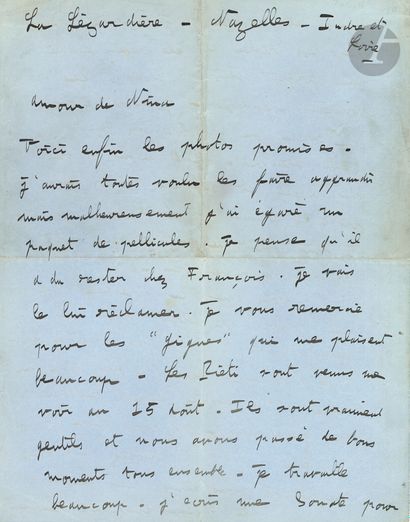 La Lézardière - Nazelles - Indre et
Loire
amour de Nina
Voici enfin les photos promises.
j'aurais toutes voulu les faire agrandir
mais malheureusement j'ai égaré un
paquet de pellicules. Je pense qu'il
a du rester chez François. Je vais
le lui réclamer. Je vous remercie
pour les "Gigues" qui me plaisent
beaucoup - Les Rieti sont venus me
voir au 15 Août. Ils sont vraiment
gentils et nous avons passé de bons
moments tous ensemble. Je travaille
beaucoup. j'écris une Sonate pour